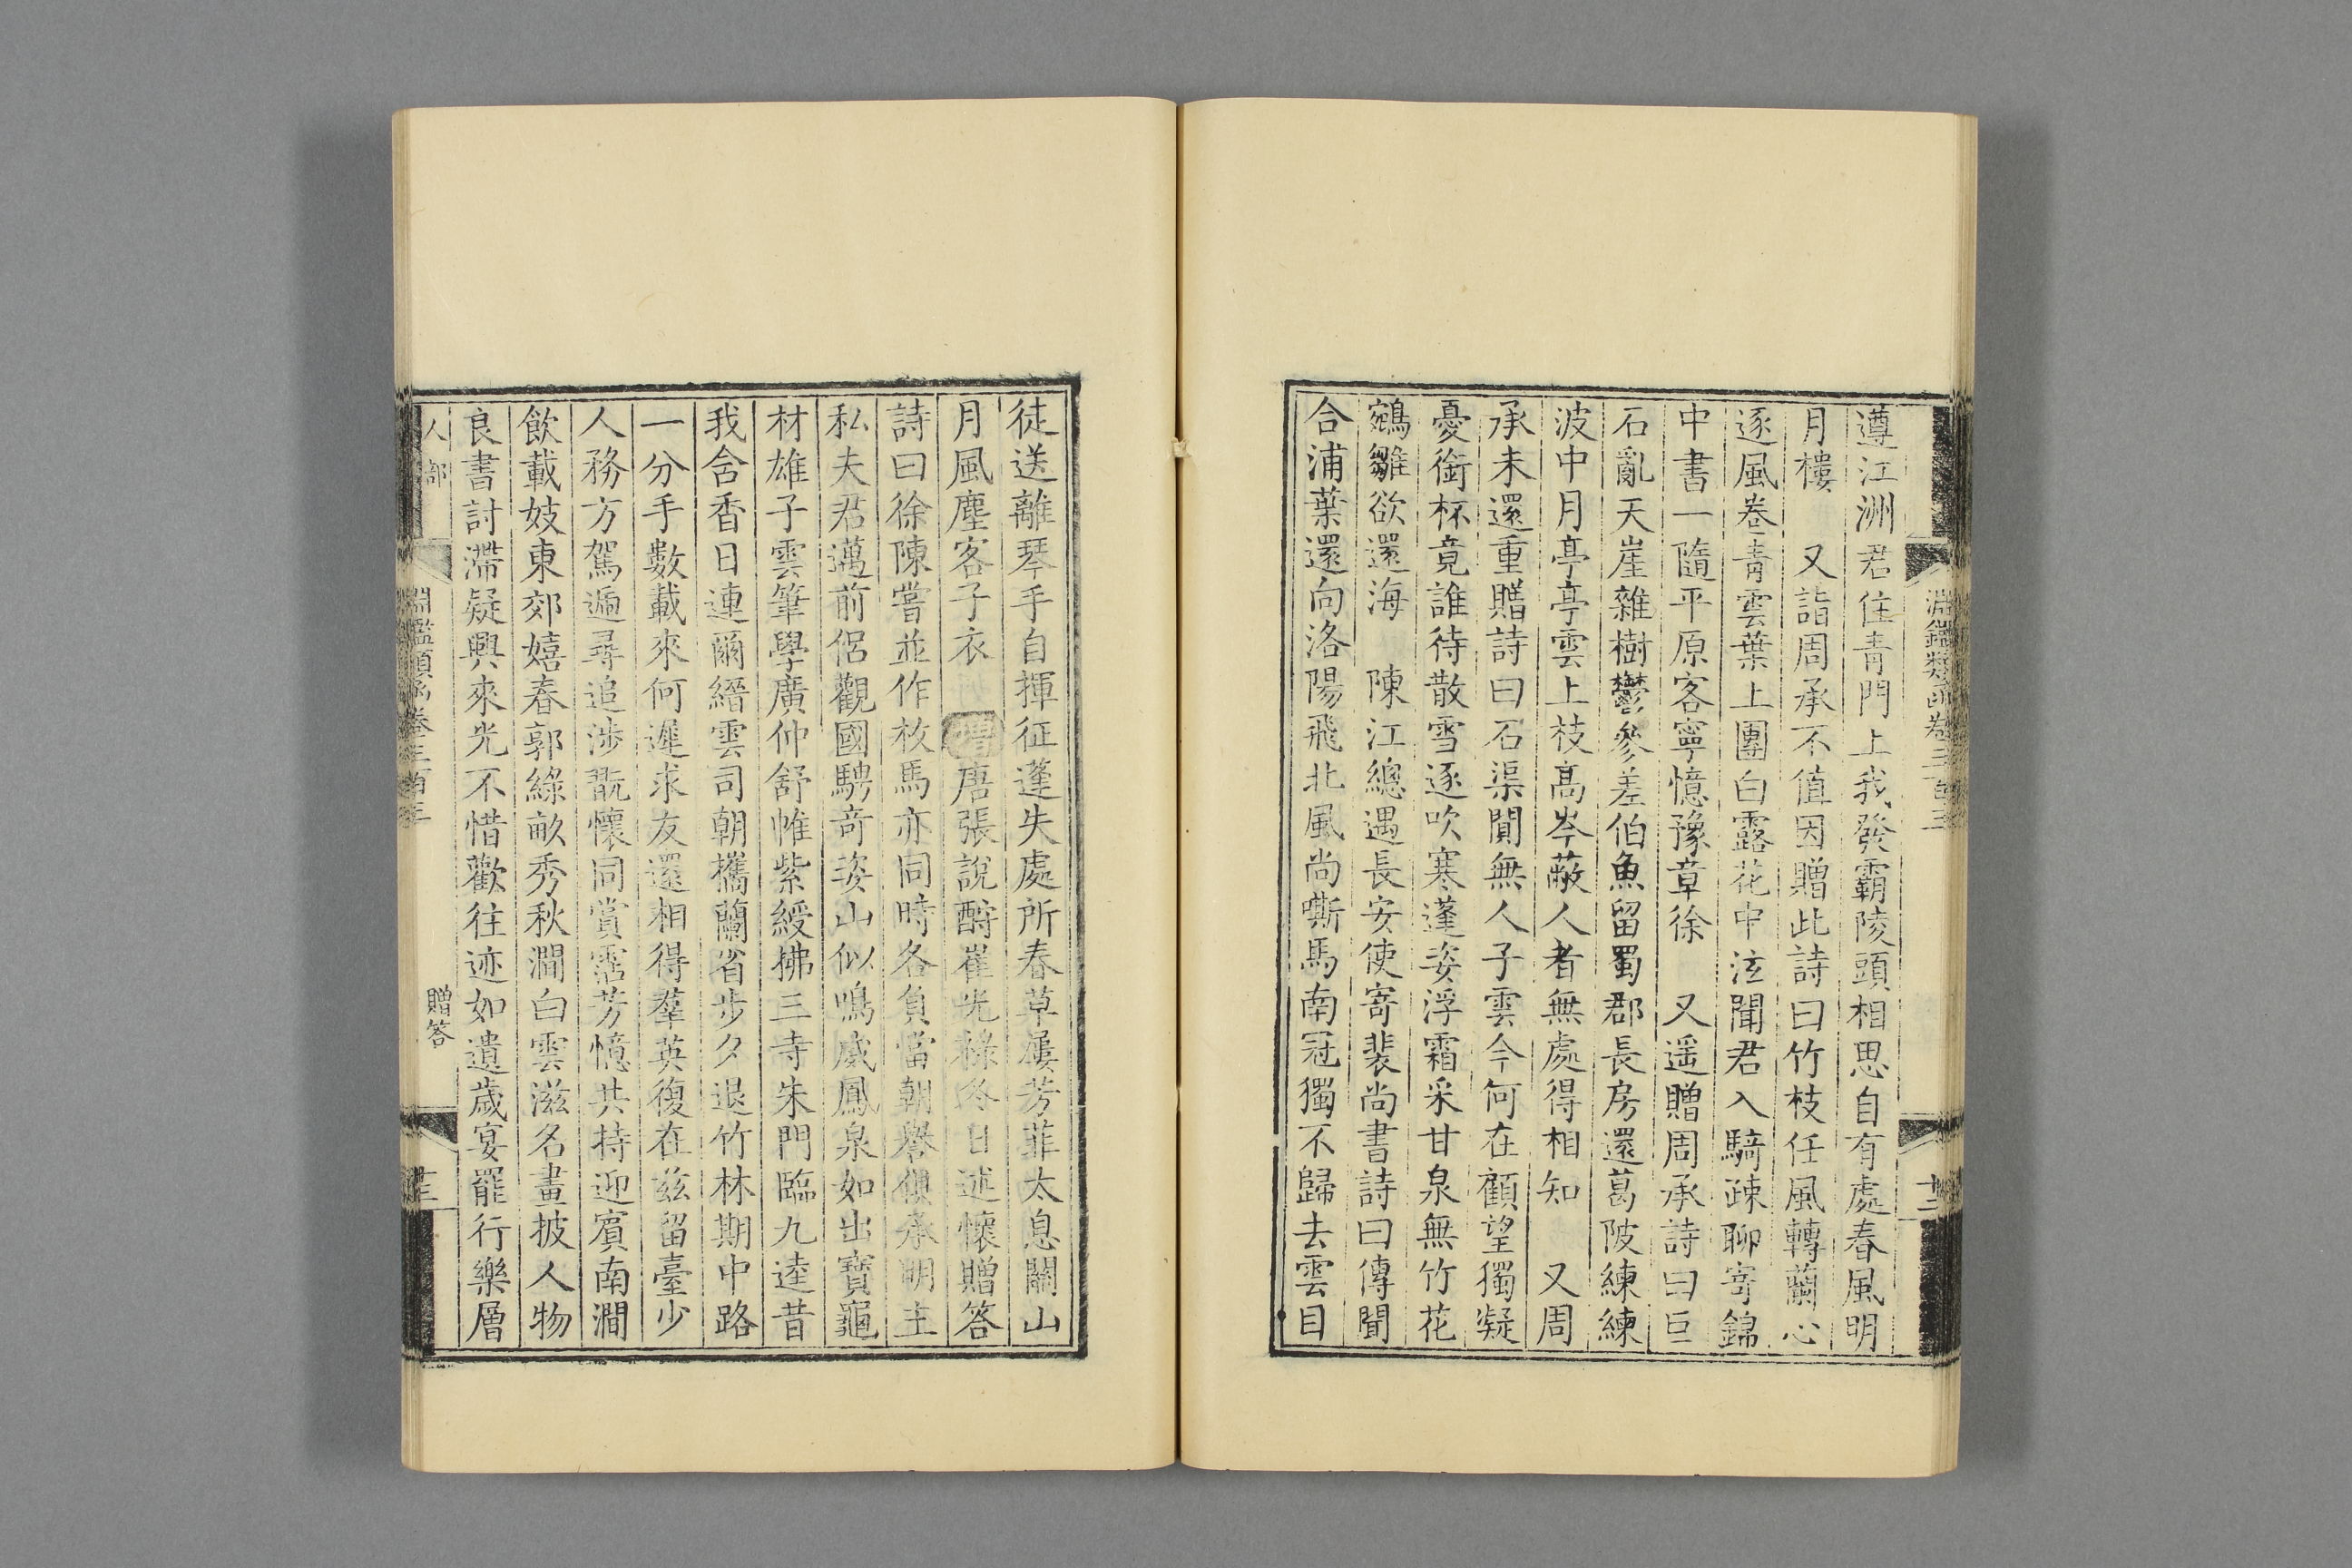 遵江洲君住青門上我發霸陵頭相思自有處春風明
月樓　又詣周承不值因贈此詩曰竹枝任風轉蘭心
逐風卷青雲葉上團白露花中泫聞君入騎疎聊寄錦
中書一隨平原客寧憶豫章徐　又遥贈周承詩曰巨
石亂天崖雜樹鬱參差伯魚留蜀郡長房還葛陂練練
波中月亭亭雲上枝髙岑蔽人者無處得相知　又周
承未還重贈詩曰石渠閴無人子雲今何在顧望獨凝
憂銜杯竟誰待散雪逐吹寒蓬姿浮霜采甘泉無竹花
鵷雛欲還海　陳江總遇長安使寄裴尚書詩曰傳聞
合浦葉還向洛陽飛北風尚嘶馬南冠獨不歸去雲目
徒送離琴手自揮征蓬失處所春草屢芳菲太息關山
月風塵客子衣　增唐張說酧崔光祿冬日述懷贈答
詩曰徐陳嘗並作枚馬亦同時各負當朝譽俱承明主
私夫君邁前侣觀國騁竒姿山似鳴威鳳泉如出寶龜
材雄子雲筆學廣仲舒帷紫綬拂三寺朱門臨九逵昔
我含香日連爾縉雲司朝攜蘭省步夕退竹林期中路
一分手數載來何遲求友還相得羣英復在兹留臺少
人務方駕遍尋追渉翫懷同賞霑芳憶共持迎賓南澗
飲載妓東郊嬉春郭綠畝秀秋澗白雲滋名畫披人物
良書討滯疑興來光不惜歡往迹如遺歲宴罷行樂層
人部
淵鑑類函卷三百三
贈答